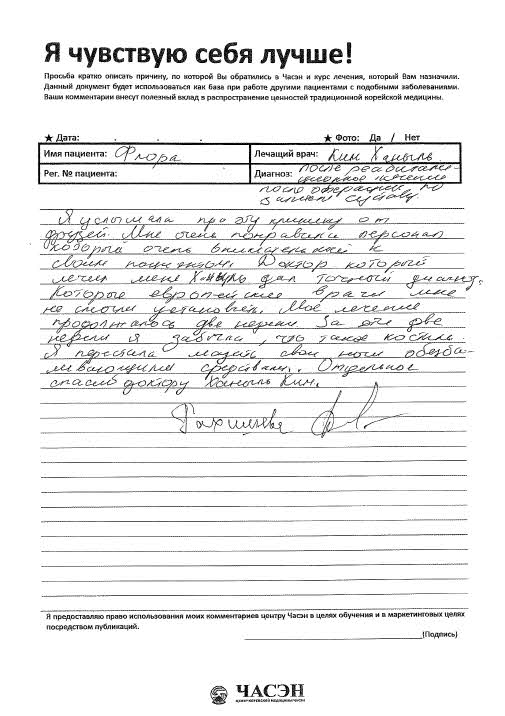 Я чувствую себя лучше!
Просьба кратко описать причину, по которой Вы обратились в Часэн и курс лечения, который Вам назначили.
Данный документ будет использоваться как база при работе другими пациентами с подобными заболеваниями.
Ваши комментарии внесут полезный вклад в распространение ценностей традиционной корейской медицины.
★ Дата: . . . ★ Фото: Да / Нет
Имя пациента: Флора Лечащий врач: Ким Ханыль
Рег. № пациента: Диагноз: после реабилита-
ционное лечение
после операции по
замене сустава.
Я услышала про эту клинику от
друзей. Мне очень понравился персонал
который очень внимательный к
своим пациентам. Доктор который
лечил меня Ханыль дал точный диагноз.
Которые европейские врачи мне
не смогли установить. Мое лечение
продолжалось две недели. За эти две
недели я забыла, что такое костыль.
Я перестала мазать свои ноги обезба-
ливающими средствами. Отдельное
спасибо доктору Ханыль Ким.
Я предоставляю право использования моих комментариев центру Часэн в целях обучения и в маркетинговых целях
посредством публикаций.
(Подпись)
ЧАСЭН
ЦЕНТР КОРЕЙСКОЙ МЕДИЦИНЫ ЧАСЭН